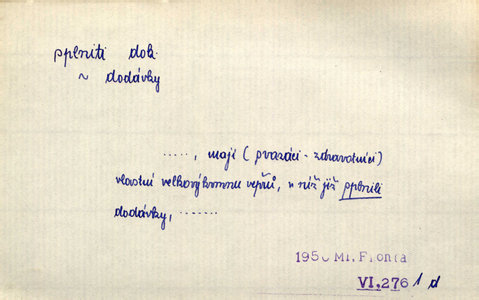 splniti dok.
~ dodávky
....., mají (svazáci - zdravotníci)
vlastní velkovýkrmnu vepřů, u níž již splnili
dodávky, .......
195 Ml. Fronta
VI,276 1 d